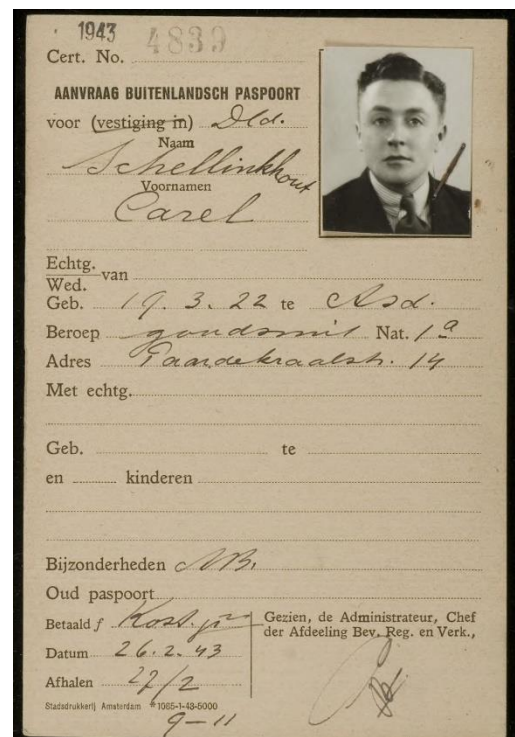 1943 4839
Cert. No.
AANVRAAG BUITENLANDSCH PASPOORT
voor (vestiging in) Dld.
Naam
Schellinkhout
Voornamen
Carel
Echtg.
Wed. van
Geb. 19.3.22 te Asd.
Beroep goudsmit Nat. 1a
Adres Paardekraalstr. 14
Met echtg.
Geb. te
en kinderen
Bijzonderheden
Oud paspoort
Betaald f Kost.
Gezien, de Administrateur, Chef
der Afdeeling Bev. Reg. en Verk.,
Datum 26.2.43
Afhalen 27/2
Stadsdrukkerij Amsterdam *1065-1-43-5000
9-11